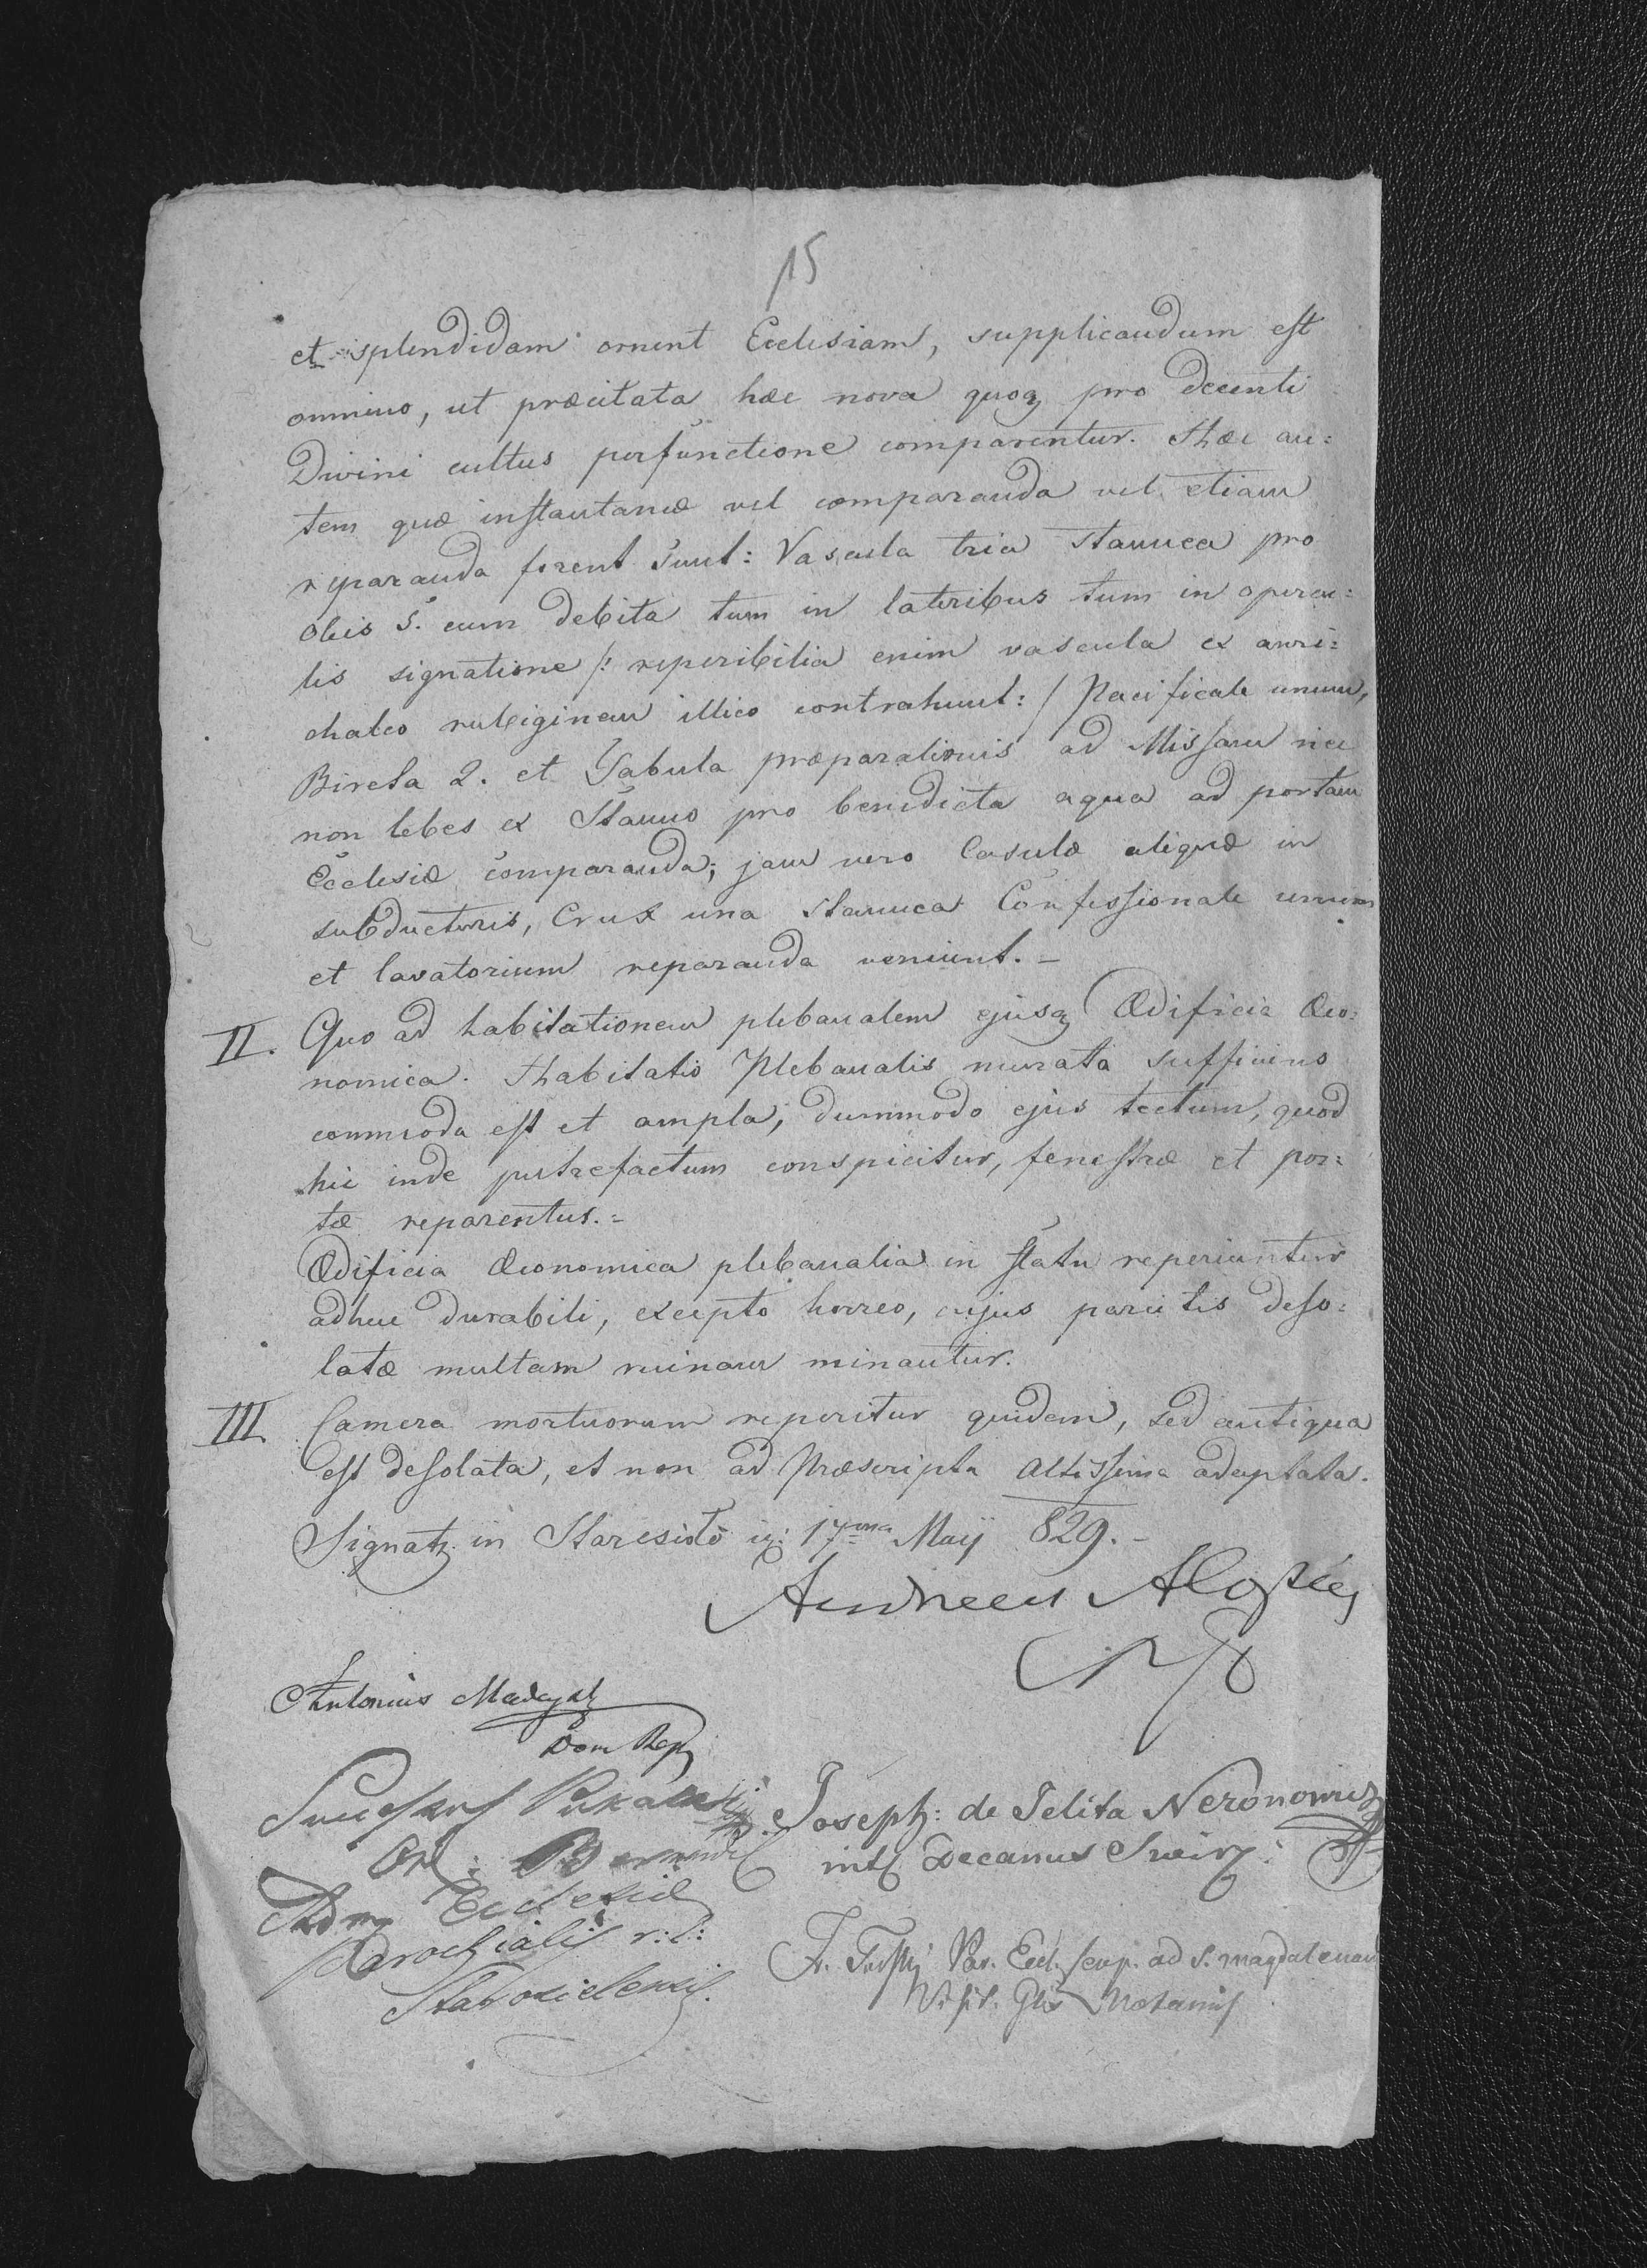 15
et splendidam ornent Ecclesiam, supplicandum est
omnino, ut præcitata hæc nova quoq pro decenti
Divini cultus perfunctione comparentur. Hæc au=
tem quæ instantaneæ vel comparanda vel etiam
reparanda forent sunt: Vascula tria stannea pro
Oleis S. cum debita tum in lateribus tum in opercu=
lis signatione /: reperibilia enim vascula ex auri=
chalco rubiginem illico contrahunt: / Pacificale unum,
Bireta 2. et Tabula præparationis ad Missam nec
non lebes ex Stanno pro benedicta aqua ad portam
Ecclesiæ comparanda; jam vero Casulæ aliquæ in
subducturis, Crux una stannea Confessionale unum
et lavatorium reparanda veniunt. –
II. Quo ad habitationem plebanalem ejusq Ædificia Œco=
nomica. Habitatio Plebanalis murata sufficiens
commoda est et ampla, dummodo ejus tectum, quod
hic inde putrefactum conspicitur, fenestræ et por=
tæ reparentur.=
Ædificia Œconomica plebanalia in statu reperiuntur
adhuc durabili, excepto horreo, cujus parietes deso=
latæ multam ruinam minantur.
III. Camera mortuorum reperitur quidem, sed antiqua
est desolata, et non ad Præscripta Altissima adaptata.
Signat. in Staresioło 17ma Maij 829. –
Andreas
Antonius
Dom Rep
Joseph: de Jelita
Decanus
Ord:
Adm Ecclesiæ
Parochialis r: l:
Par. Eccl. ad S. Magdalenam
Notarius